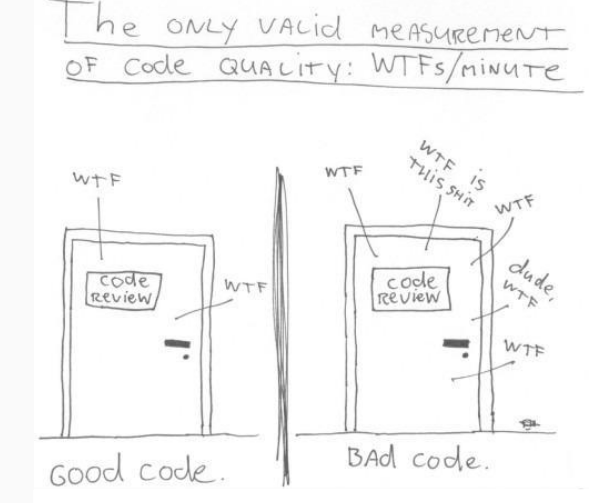 The ONLY VALID MEASUREMENT
OF Code QUALITY: WTFs/MINUTE
WTF
code
REVIEW
WTF
GOOD code.
WTF
WTF IS
THIS SHIT
WTF
code
REVIEW
dude,
WTF
WTF
BAD code.